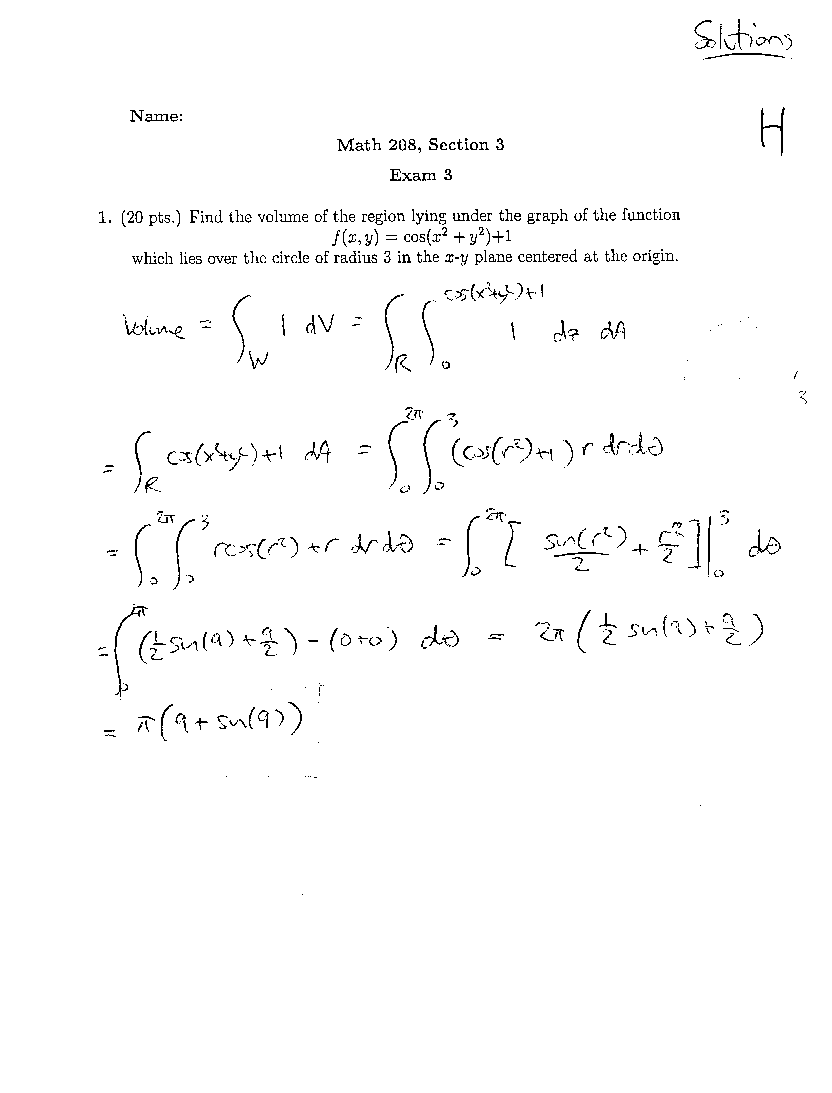 Solutions
Name:
H
Math 208, Section 3
Exam 3
1. (20 pts.) Find the volume of the region lying under the graph of the function
f(x, y) = cos(x² + y²)+1
which lies over the circle of radius 3 in the x-y plane centered at the origin.
Volume = ∫_W 1 dV = ∫_R ∫_0^{cos(x²+y²)+1} 1 dz dA
= ∫_R cos(x²+y²)+1 dA = ∫_0^{2π} ∫_0^3 (cos(r²)+1) r dr dθ
= ∫_0^{2π} ∫_0^3 rcos(r²) + r dr dθ = ∫_0^{2π} [ sin(r²)/2 + r²/2 ] |_0^3 dθ
= ∫_0^{2π} (1/2 sin(9) + 9/2) - (0+0) dθ = 2π ( 1/2 sin(9) + 9/2 )
= π(9 + sin(9))